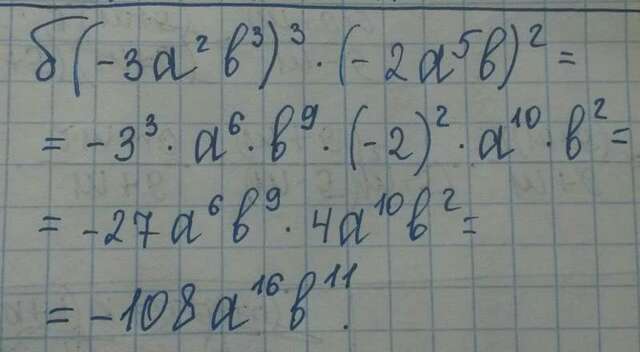 б (-3a²b³)³·(-2a⁵b)²=
= -3³·a⁶·b⁹·(-2)²·a¹⁰·b²=
= -27a⁶b⁹·4a¹⁰b²=
= -108a¹⁶b¹¹.